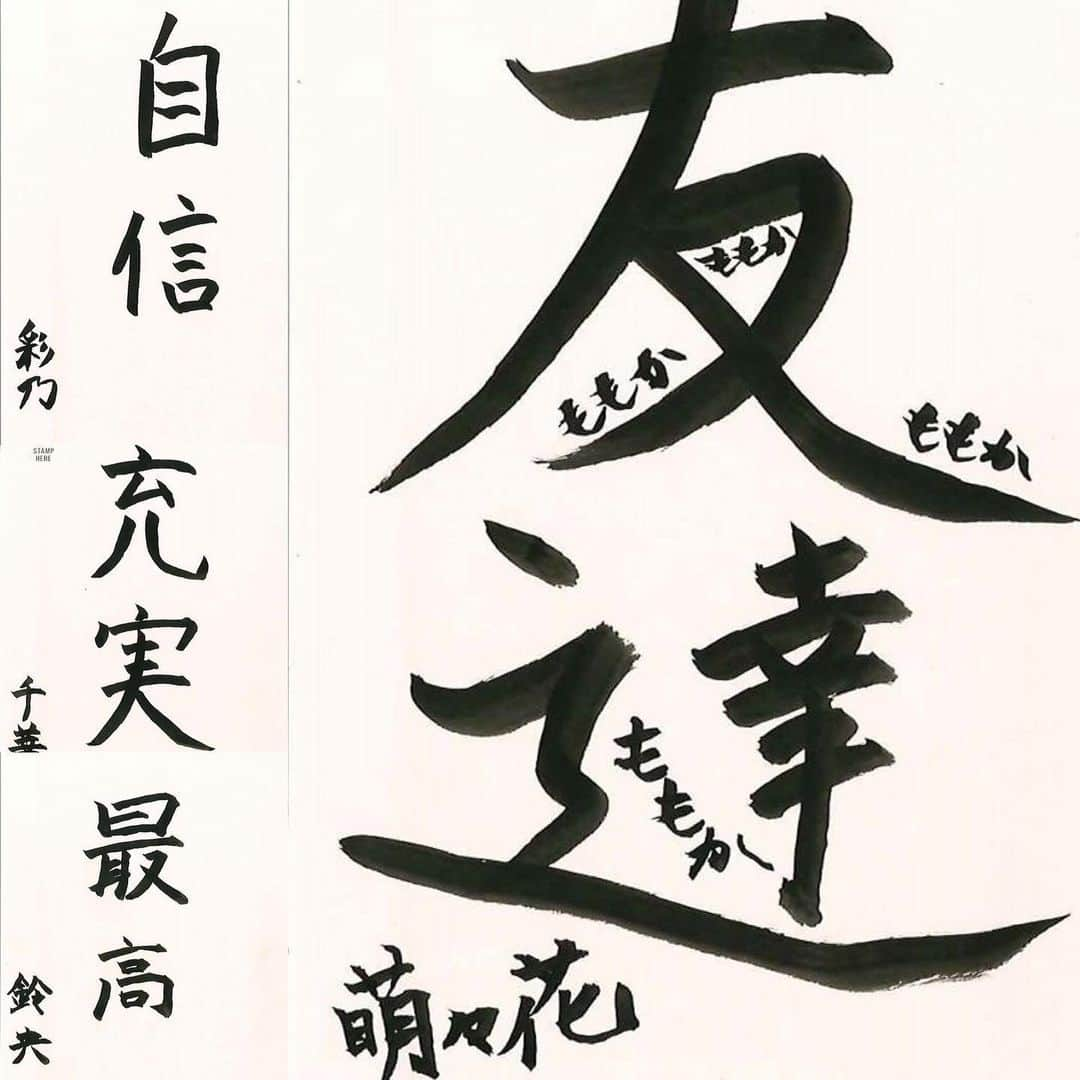 自信
彩乃
STAMP
HERE
充実
千華
最高
鈴央
友達
ももか
ももか
ももか
ももか
萌々花